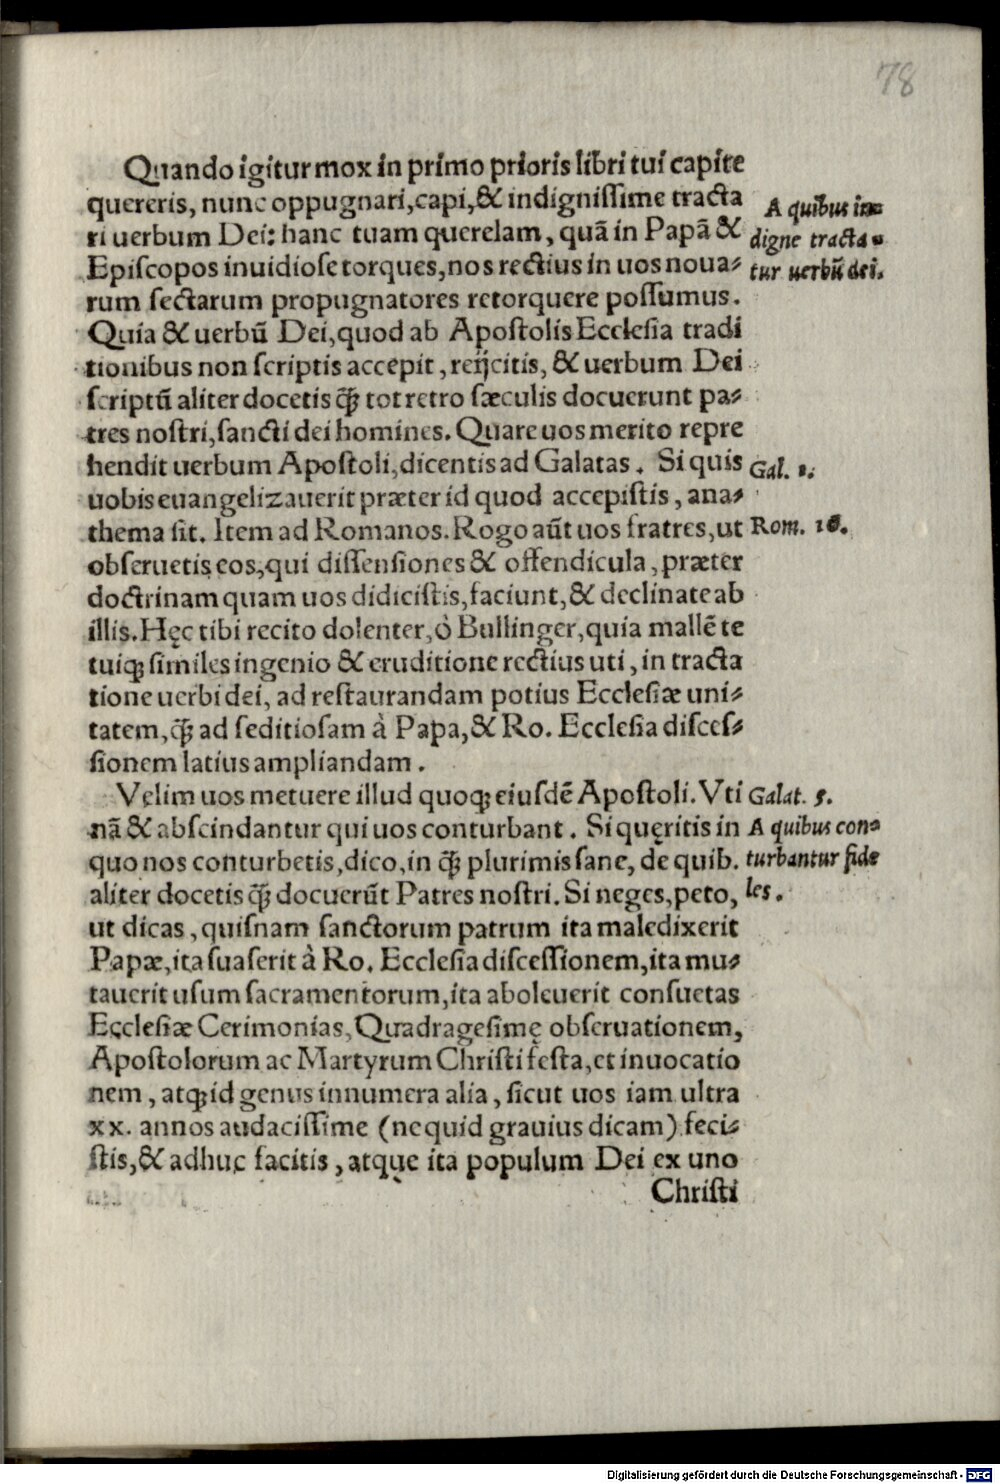 78
Quando igitur mox in primo prioris libri tui capite
quereris, nunc oppugnari, capi, & indignissime tracta
ri uerbum Dei: hanc tuam querelam, quã in Papã &
Episcopos inuidiose torques, nos rectius in uos noua-
rum sectarum propugnatores retorquere possumus.
Quia & uerbũ Dei, quod ab Apostolis Ecclesia tradi
tionibus non scriptis accepit, reijcitis, & uerbum Dei
scriptũ aliter docetis q̃ꝫ tot retro sæculis docuerunt pa-
tres nostri, sancti dei homines. Quare uos merito repre
hendit uerbum Apostoli, dicentis ad Galatas. Si quis
uobis euangelizauerit præter id quod accepistis, ana-
thema sit. Item ad Romanos. Rogo aũt uos fratres, ut
obseruetis eos, qui dissensiones & offendicula, præter
doctrinam quam uos didicistis, faciunt, & declinate ab
illis. Hęc tibi recito dolenter, ò Bullinger, quia mallẽ te
tuiqꝫ similes ingenio & eruditione rectius uti, in tracta
tione uerbi dei, ad restaurandam potius Ecclesiæ uni-
tatem, q̃ꝫ ad seditiosam à Papa, & Ro. Ecclesia disces-
sionem latius ampliandam.
Velim uos metuere illud quoqꝫ eiusdẽ Apostoli. Vti
nã & abscindantur qui uos conturbant. Si quęritis in
quo nos conturbetis, dico, in q̃ꝫ plurimis sane, de quib.
aliter docetis q̃ꝫ docuerũt Patres nostri. Si neges, peto,
ut dicas, quisnam sanctorum patrum ita maledixerit
Papæ, ita suaserit à Ro. Ecclesia discessionem, ita mu-
tauerit usum sacramentorum, ita aboleuerit consuetas
Ecclesiæ Cerimonias, Quadragesimę obseruationem,
Apostolorum ac Martyrum Christi festa, et inuocatio
nem, atqꝫ id genus innumera alia, sicut uos iam ultra
xx. annos audacissime (ne quid grauius dicam) feci-
stis, & adhuc facitis, atque ita populum Dei ex uno
Christi
A quibus in-
digne tracta-
tur uerbũ dei.
Gal. 1.
Rom. 16.
Galat. 5.
A quibus con-
turbantur fide
les.
Digitalisierung gefördert durch die Deutsche Forschungsgemeinschaft - DFG